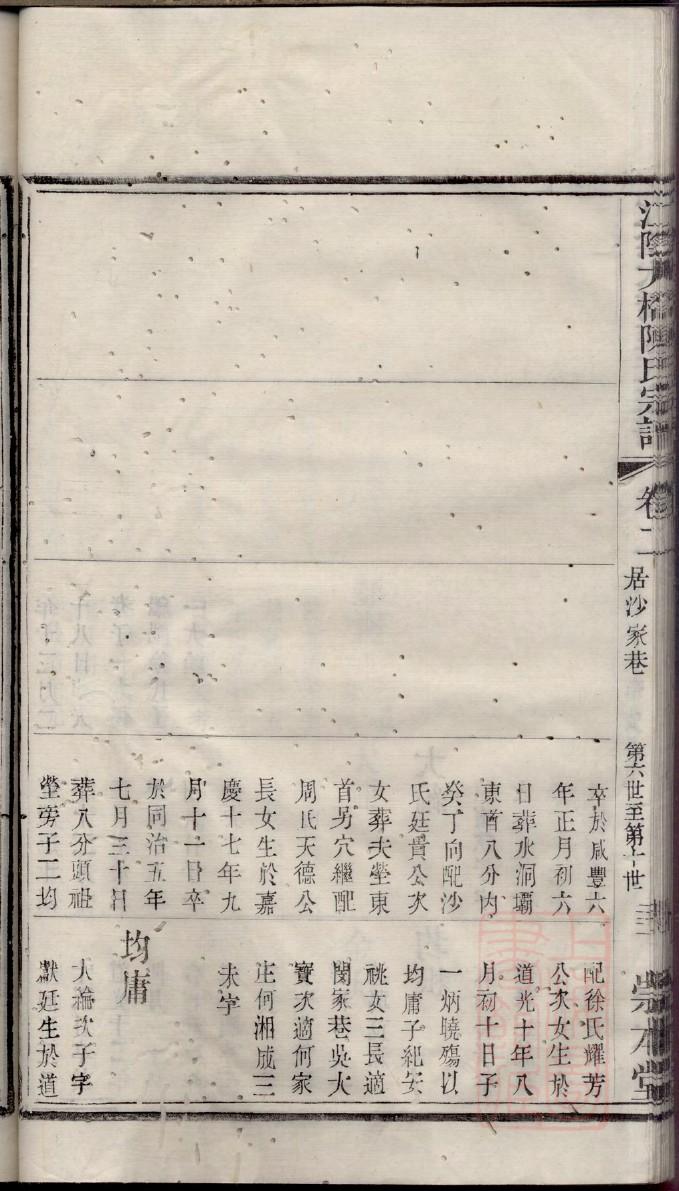 江陰大橋陳氏宗譜
卷二
居沙家巷
第六世至第十世
崇本堂
卒於咸豐六
年正月初六
日葬水洞壩
東首八分內
癸丁向配沙
氏廷貴公次
女葬夫塋東
首另穴繼配
周氏天德公
長女生於嘉
慶十七年九
月十一日卒
於同治五年
七月三十日
葬八分頭祖
塋旁子二均
配徐氏耀芳
公次女生於
道光十年八
月初十日子
一炳曉殤以
均庸子紀安
祧女三長適
閔家巷吳大
寶次適何家
庄何湘成三
未字
均庸
大綸次子字
獻廷生於道